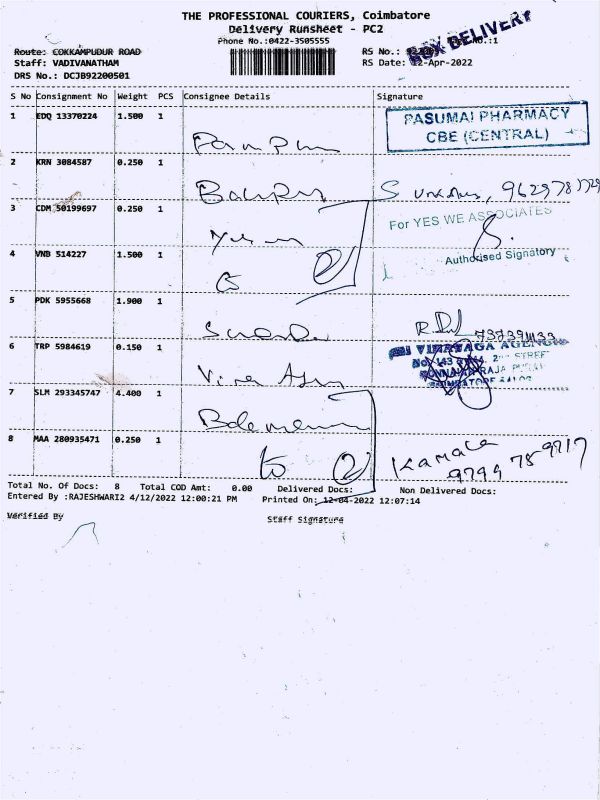 THE PROFESSIONAL COURIERS, Coimbatore
Delivery Runsheet - PC2
Phone No.:0422-3505555
BOX DELIVERY
Route: COKKAMPUDUR ROAD
RS No.:
Staff: VADIVANATHAM
RS Date: 12-Apr-2022
DRS No.: DCJB92200501
S No Consignment No Weight PCS Consignee Details Signature
1 EDQ 13370224 1.500 1
PASUMAI PHARMACY
CBE (CENTRAL)
2 KRN 3084587 0.250 1
3 CDM 50199697 0.250 1
For YES WE ASSOCIATES
4 VNB 514227 1.500 1
Authorised Signatory
5 PDK 5955668 1.900 1
6 TRP 5984619 0.150 1
VINAYAGA AGENCIES
STREET
COIMBATORE
7 SLM 293345747 4.400 1
8 MAA 280935471 0.250 1
to 2
Kamala
9794 78 9717
Total No. Of Docs: 8 Total COD Amt: 0.00 Delivered Docs: Non Delivered Docs:
Entered By :RAJESHWARI2 4/12/2022 12:00:21 PM Printed On: 12-04-2022 12:07:14
Verified By Staff Signature